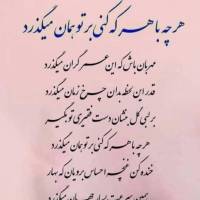 هر چه با هر که کنی بر تو همان میگذرد
مهربان باش که این عمر گران میگذرد
قدر این لحظه بدان چرخ زمان میگذرد
بر لبی گل بنشان دست فقیری تو بگیر
هر چه با هر که کنی بر تو همان میگذرد
خنده کن غنچه احساس برویان که بهار